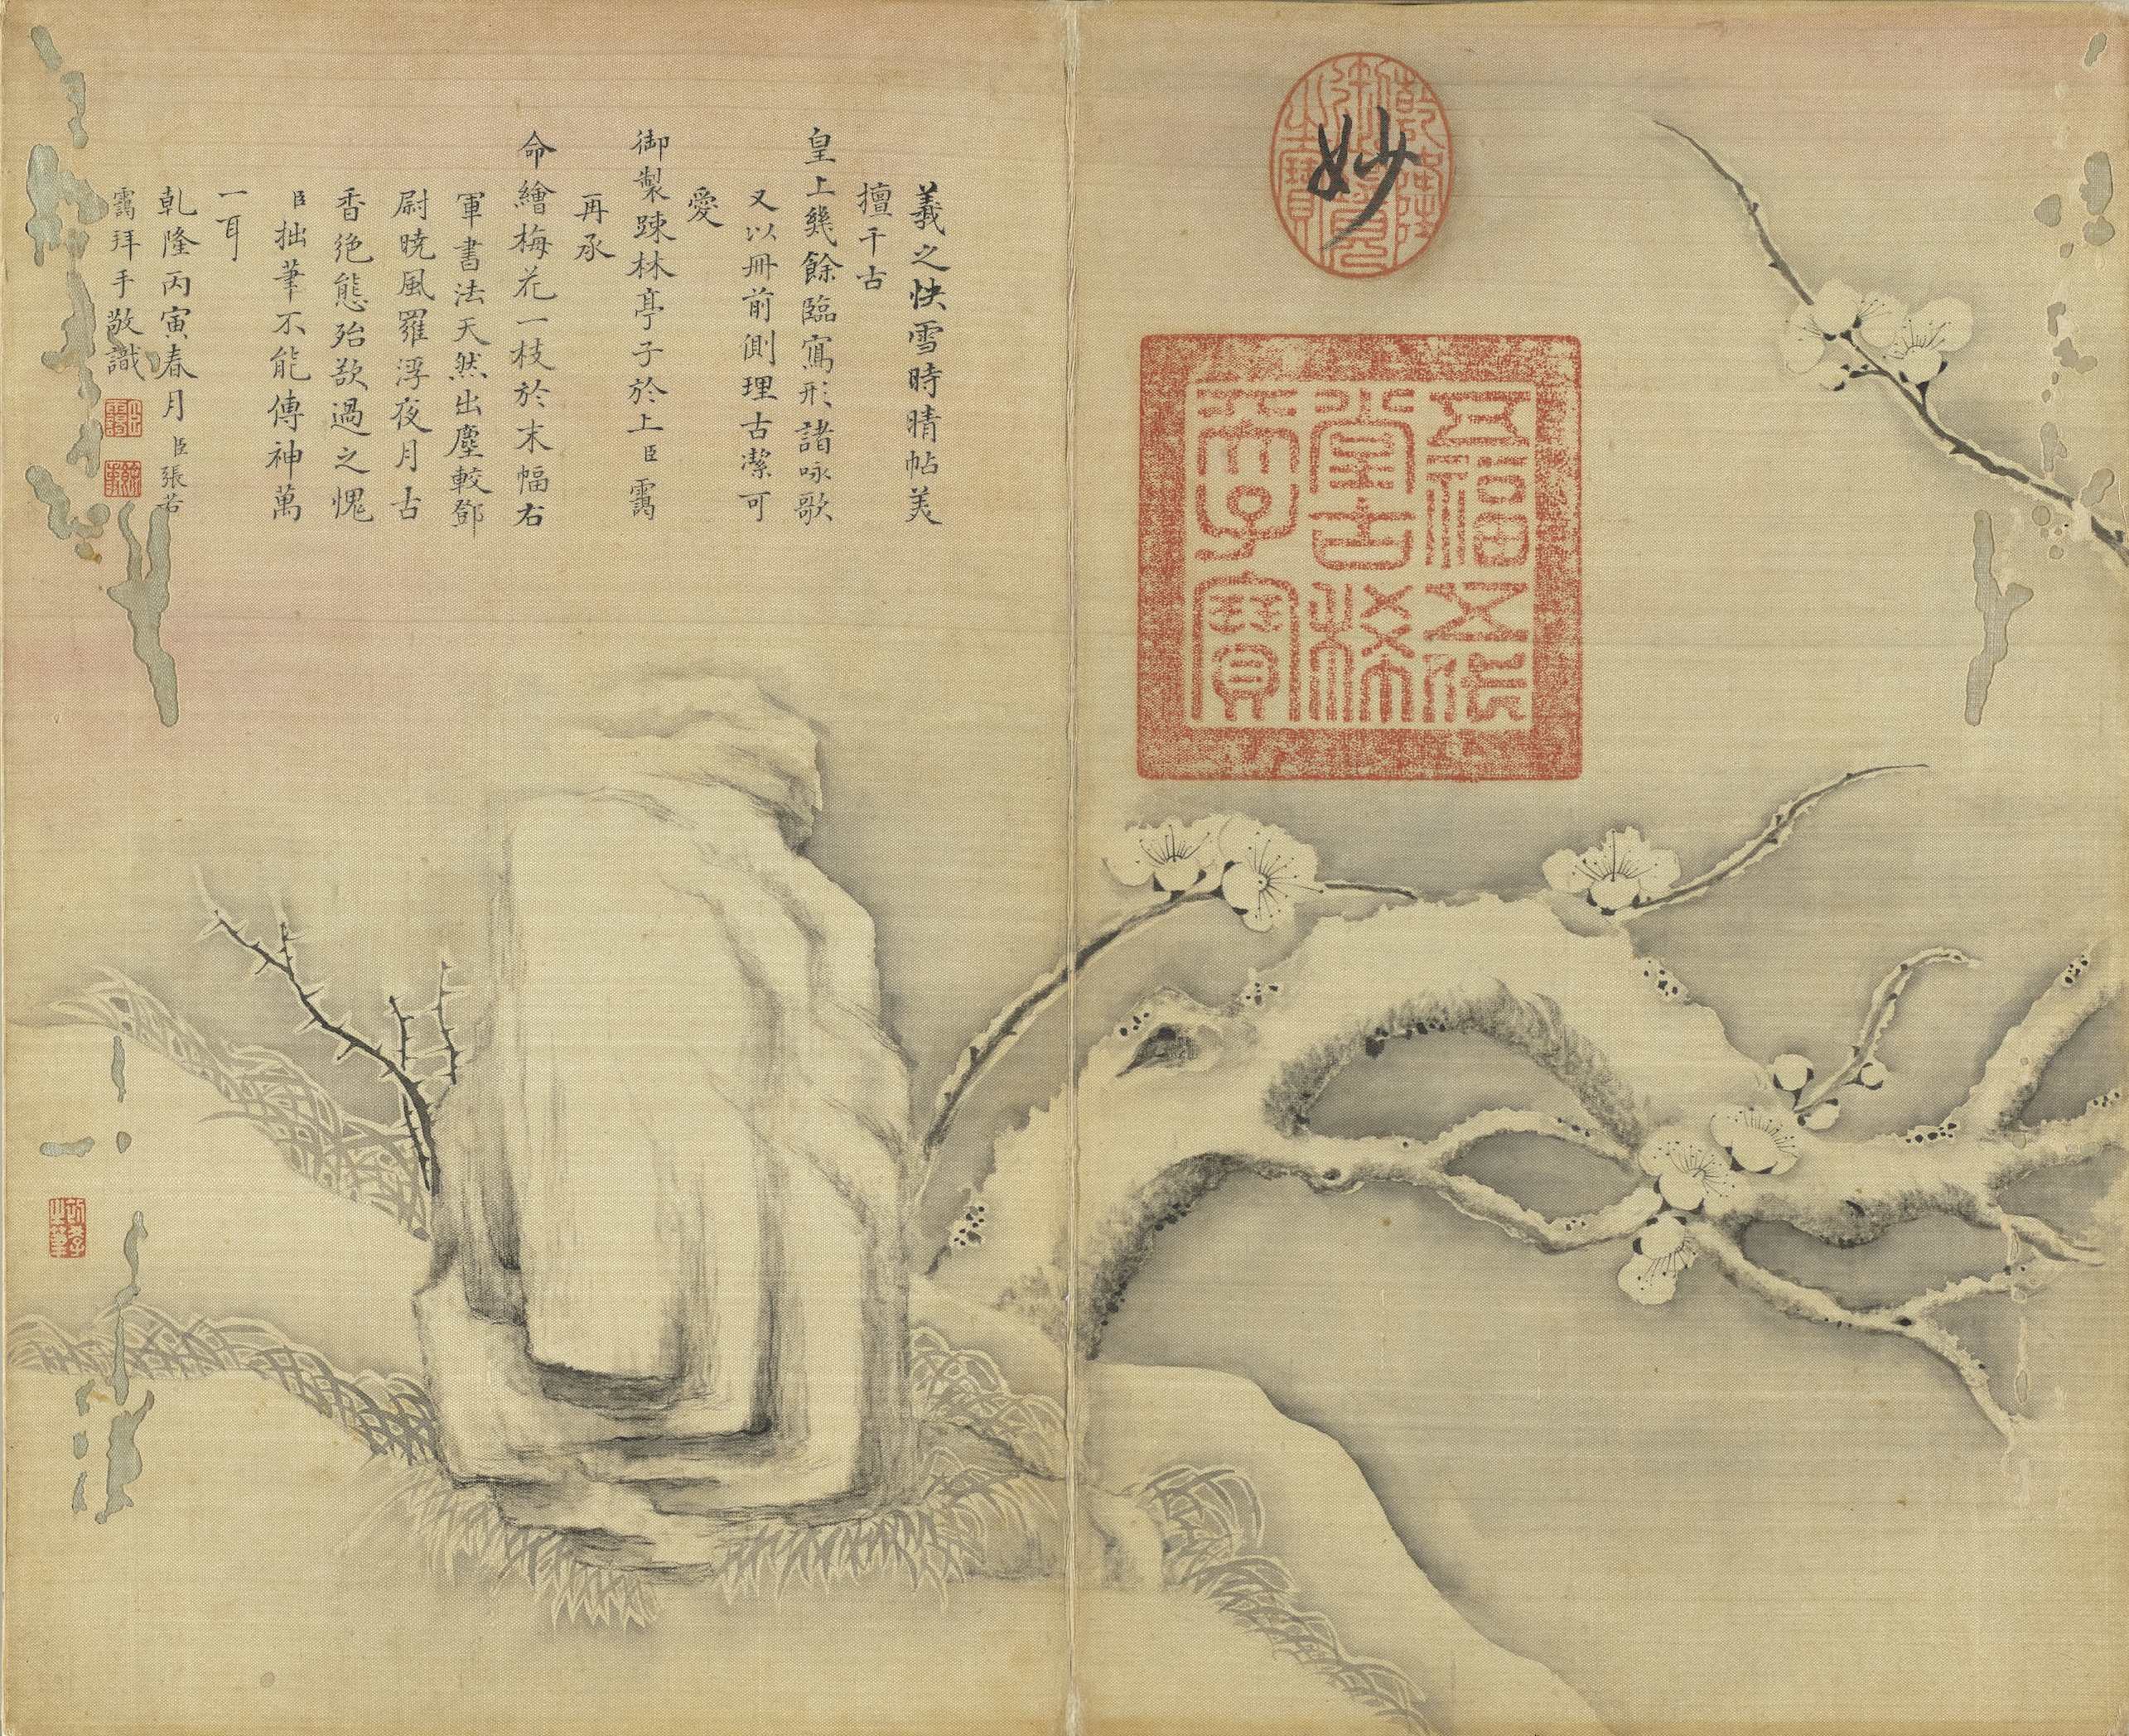 妙
乾隆
御覽
之寶
五福五代
堂古稀
天子寶
羲之快雪時晴帖美
擅千古
皇上幾餘臨寫形諸咏歌
又以冊前側理古潔可
愛
御製踈林亭子於上臣靄
再承
命繪梅花一枝於末幅右
軍書法天然出塵較鄧
尉曉風羅浮夜月古
香絕態殆欲過之愧
臣拙筆不能傳神萬
一耳
乾隆丙寅春月臣張若
靄拜手敬識